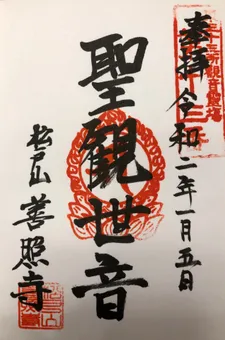 奉拝 令和二年一月五日
聖観世音
松山 善照寺